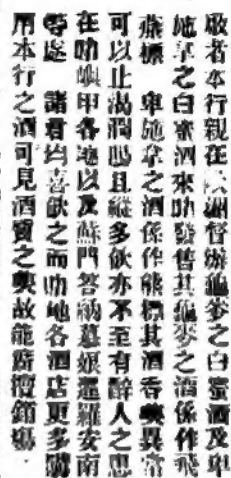 敬者本行親在歐洲督辦龜麥之白蜜酒及卑
施拿之白蜜酒來叻發售其龜麥之酒係作飛
燕標 卑施拿之酒係作熊標其酒香異常
可以止渴潤腸且縱多飲亦不至有醉人之患
在叻嶼甲各以及蘇門答臘暮娘暹羅安南
等處 諸君均喜飲之而叻地各酒店更多購
用本行之酒可見酒質之故能擅銷塲